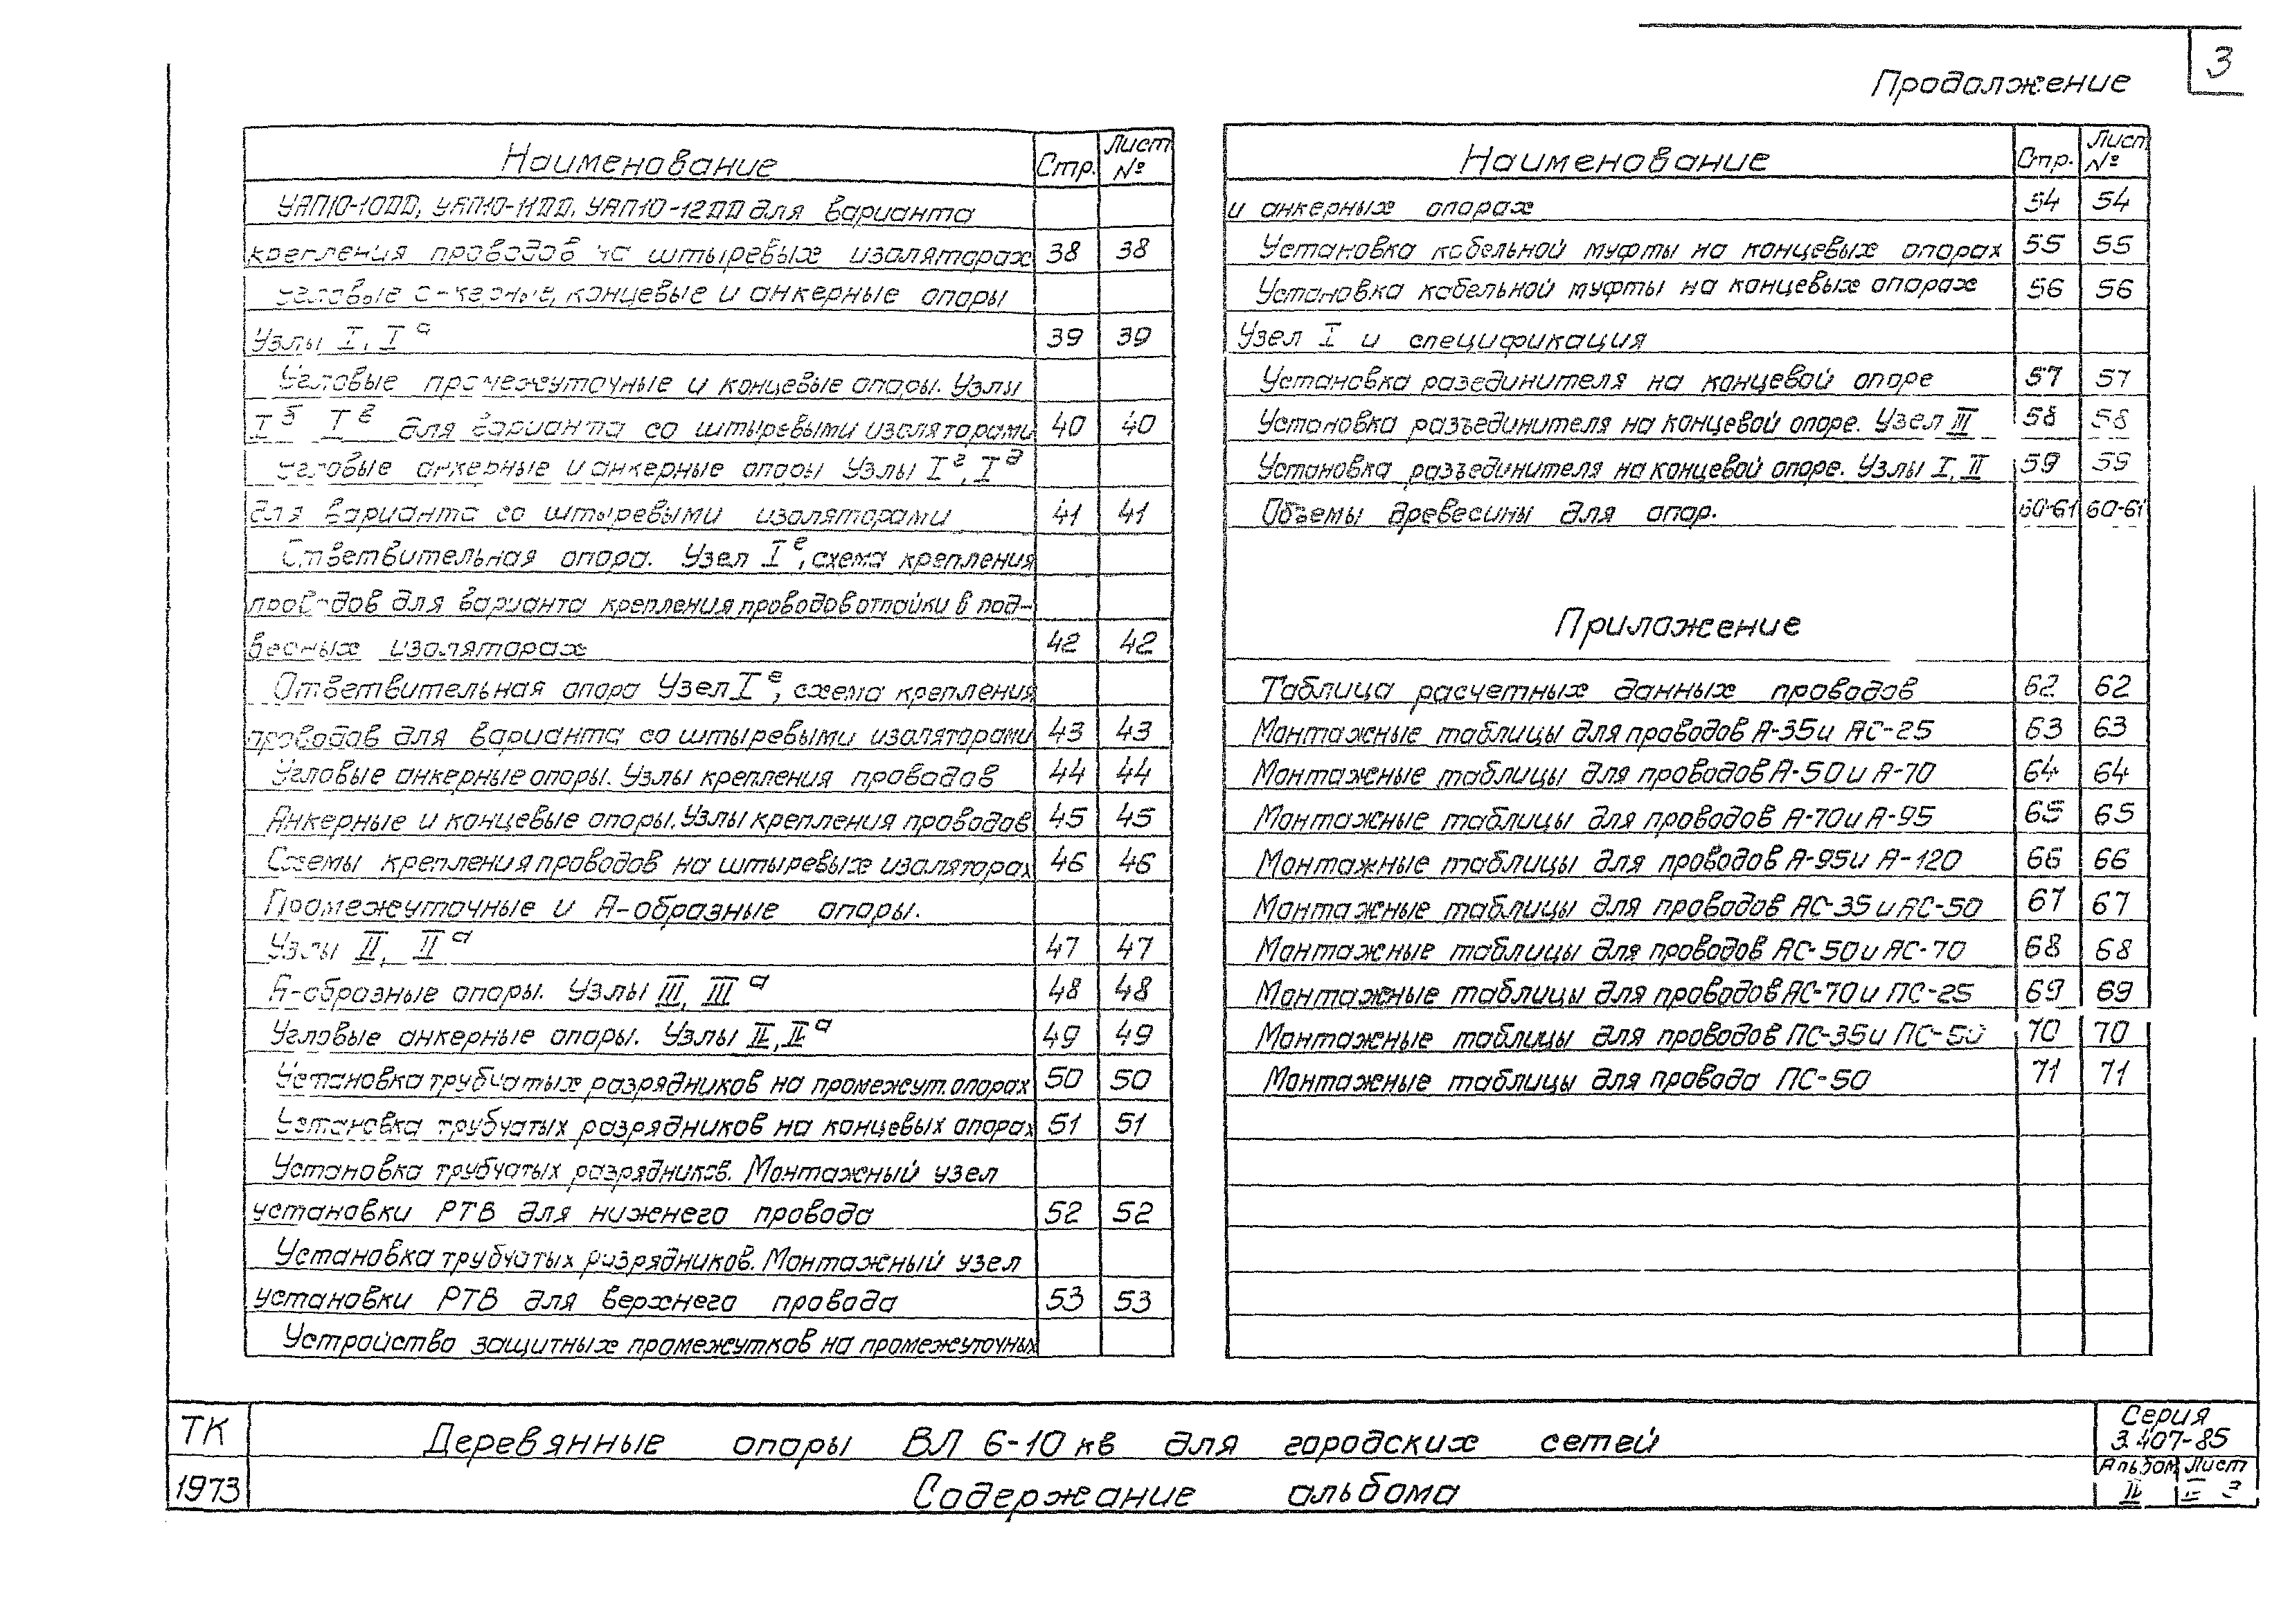 3
Продолжение
Наименование Стр. Лист №
УАП10-10ДД, УАП10-11ДД, УАП10-12ДД для варианта
крепления проводов на штыревых изоляторах 38 38
Угловые анкерные, концевые и анкерные опоры
Узлы I, Iа 39 39
Угловые промежуточные и концевые опоры. Узлы
Iб Iв для варианта со штыревыми изоляторами 40 40
Угловые анкерные и анкерные опоры Узлы Iг, Iд
для варианта со штыревыми изоляторами 41 41
Ответвительная опора. Узел Iе, схема крепления
проводов для варианта крепления проводов отпайки в под-
весных изоляторах 42 42
Ответвительная опора Узел Iе, схема крепления
проводов для варианта со штыревыми изоляторами 43 43
Угловые анкерные опоры. Узлы крепления проводов 44 44
Анкерные и концевые опоры. Узлы крепления проводов 45 45
Схемы крепления проводов на штыревых изоляторах 46 46
Промежуточные и А-образные опоры.
Узлы II, IIа 47 47
А-образные опоры. Узлы III, IIIа 48 48
Угловые анкерные опоры. Узлы II, IIа 49 49
Установка трубчатых разрядников на промежут. опорах 50 50
Установка трубчатых разрядников на концевых опорах 51 51
Установка трубчатых разрядников. Монтажный узел
установки РТВ для нижнего провода 52 52
Установка трубчатых разрядников. Монтажный узел
установки РТВ для верхнего провода 53 53
Устройство защитных промежутков на промежуточных
Наименование Стр. Лист №
и анкерных опорах 54 54
Установка кабельной муфты на концевых опорах 55 55
Установка кабельной муфты на концевых опорах 56 56
Узел I и спецификация
Установка разединителя на концевой опоре 57 57
Установка разъединителя на концевой опоре. Узел III 58 58
Установка разъединителя на концевой опоре. Узлы I, II 59 59
Объемы древесины для опор. 60-61 60-61
Приложение
Таблица расчетных данных проводов 62 62
Монтажные таблицы для проводов А-35 и АС-25 63 63
Монтажные таблицы для проводов А-50 и А-70 64 64
Монтажные таблицы для проводов А-70 и А-95 65 65
Монтажные таблицы для проводов А-95 и А-120 66 66
Монтажные таблицы для проводов АС-35 и АС-50 67 67
Монтажные таблицы для проводов АС-50 и АС-70 68 68
Монтажные таблицы для проводов АС-70 и ПС-25 69 69
Монтажные таблицы для проводов ПС-35 и ПС-50 70 70
Монтажные таблицы для провода ПС-50 71 71
ТК
1973
Деревянные опоры ВЛ 6-10 кв для городских сетей
Содержание альбома
Серия
3.407-85
Альбом Лист
II 3